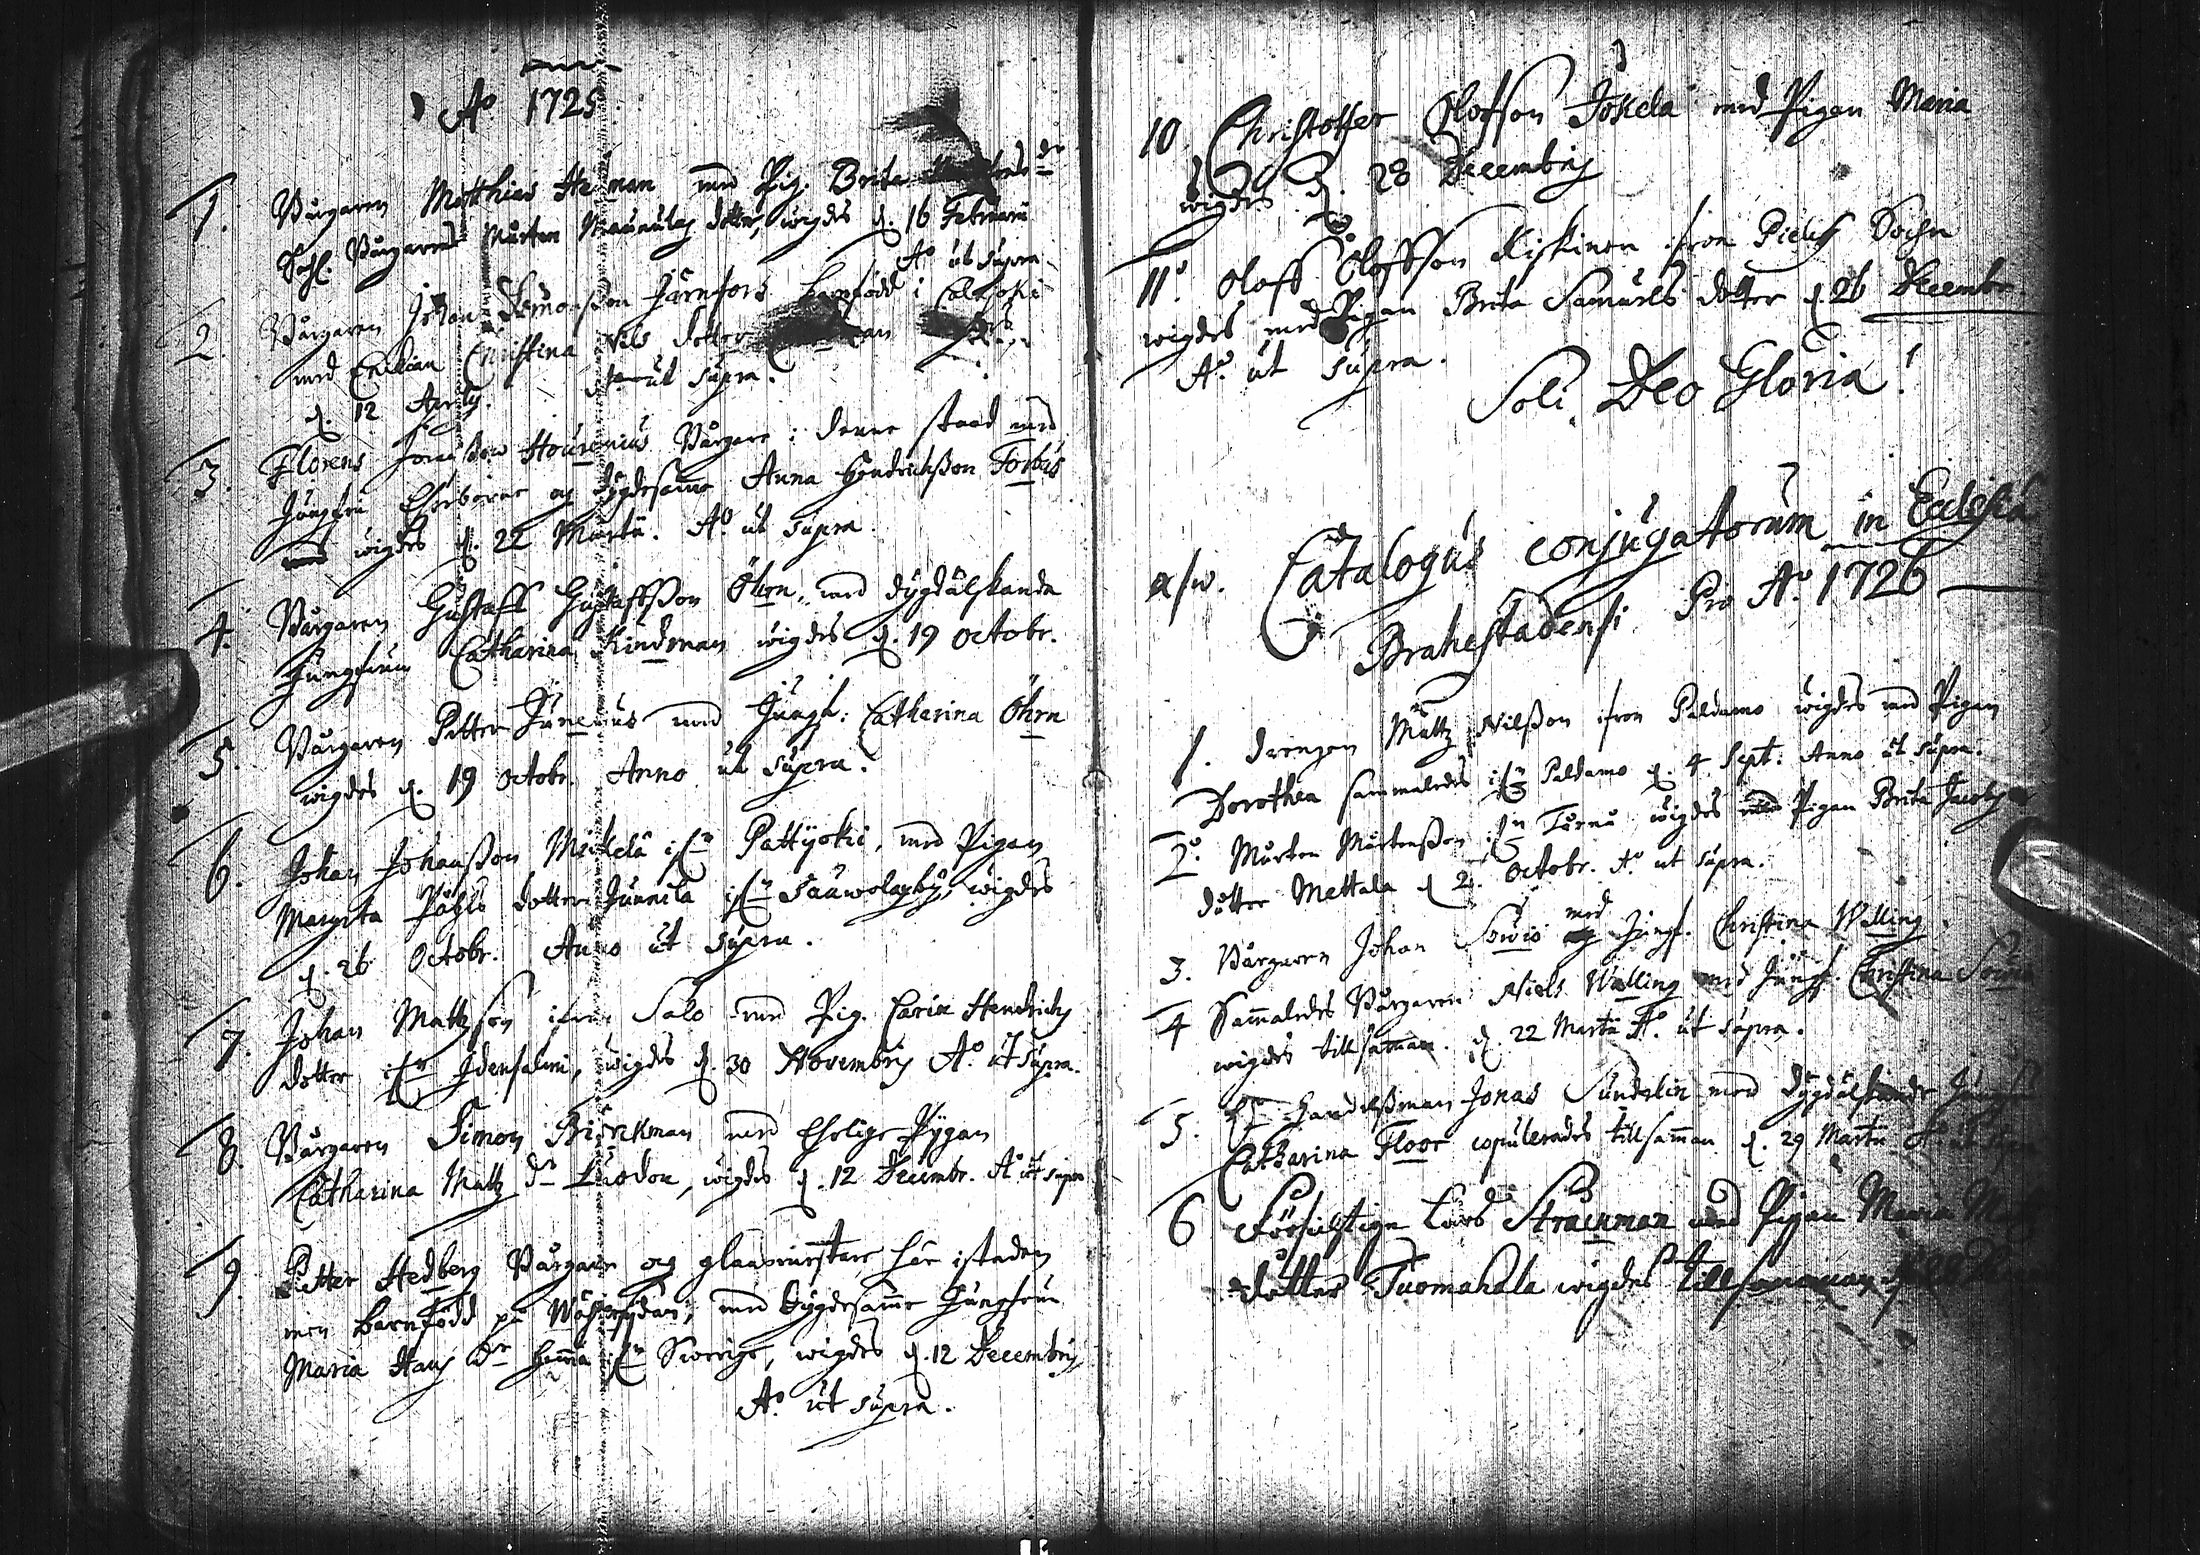 Aº 1725
1. Bårgaren Matthias Heman med Pig. Brita dr
Sahl. Bårgarens Mårten dotter, wigdes d. 16 Februarii
Aº ut supra.
2. Bårgaren Johan Simonsson Järnfors barnfödd i Calajoki
med Enkian Christina Nils dotter
d. 12 Aprilis. ut supra.
3. Florens Hourenius Bårgare i denne stad med
Jungfru Ehrborne og dygdesamme Anna Hendrichsson Forbus
wigdes d. 22 Martii. Aº ut supra.
4. Bårgaren Gustaff Gustaffsson Öhrn, med dygdälskande
Jungfrun Catharina Kindsman wigdes d. 19 octobr.
5. Bårgaren Petter Junelius med Jungf. Catharina Öhrn
wigdes d. 19 octobr. Anno ut supra.
6. Johan Johansson Meikelä ifrn Pattijoki, med Pigan
Margeta Påhls dotter Junnila ifrn Sauwolaxby, wigdes
d. 26 Octobr. Anno ut supra.
7. Johan Mattzson ifrån Salo med Pig. Carin Hendrichs
dotter ifrn Idensalmi, wigdes d. 30 Novembris Aº ut supra.
8. Bårgaren Simon Biörckman med Ehrlige Pygan
Catharina Mattz dr Luodon, wigdes d. 12 Decembr. Aº ut supra
9. Petter Hedberg Bårgare og glaasmästare här i staden
men barnfödd på med dygdesamme Jungfrun
Maria Hans dr ifrn Swerige, wigdes d. 12 Decembris
Aº ut supra.
10 Christoffer Olofson Jokela med Pigan Maria
wigdes d. 28 Decembris
11º. Oloff Oloffson Kiskinen ifrån Pielis Sochn
wigdes med Pigan Brita Samuels dotter d. 26 Decembr
Aº ut supra.
Soli Deo Gloria!
Catalogus conjugatorum in Ecclesia
Brahestadensi Pro Aº 1726
1. Drengen Mattz Nilsson ifrån Paldamo wigdes med Pigan
Dorothea sammaledes ifrn Paldamo d. 4 Sept: Anno ut supra.
2º. Mårten Mårtensson ifrn Torne wigdes med Pigan Brita Jacobs
dotter Mettala d 2. Octobr. Aº ut supra.
3. Bårgaren Johan Sowio med Jungf. Christina Walling
4 Sammaledes Bårgaren Niels Walling med Jungf. Christina Sowio
wigdes tillsamman. d. 22 Martii Aº. ut supra.
5. Handelsman Jonas Sundelin med dygdälskande
Catharina Floor copulerades tillsamman d. 29 Martii
6 Försichtige Lars Strackman med Pigan Maria
dotter Tuomahala wigdes tillsamman